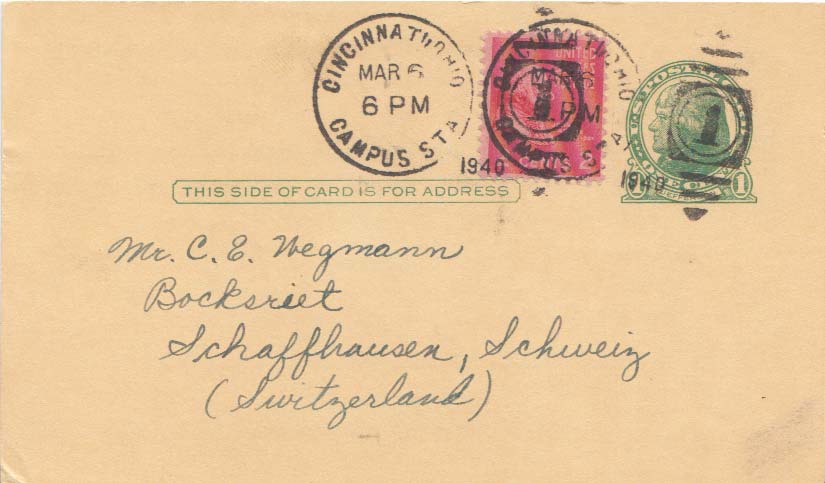 CINCINNATI, OHIO
MAR 6
6 PM
CAMPUS STA.
1940
UNITED
CENTS 2
CINCINNATI, OHIO
MAR 6
PM
1
STA.
1940
1
U.S. POSTAGE
1 ONE CENT 1
THIS SIDE OF CARD IS FOR ADDRESS
Mr. C. E. Wegmann
Bocksriet
Schaffhausen, Schweiz
(Switzerland)